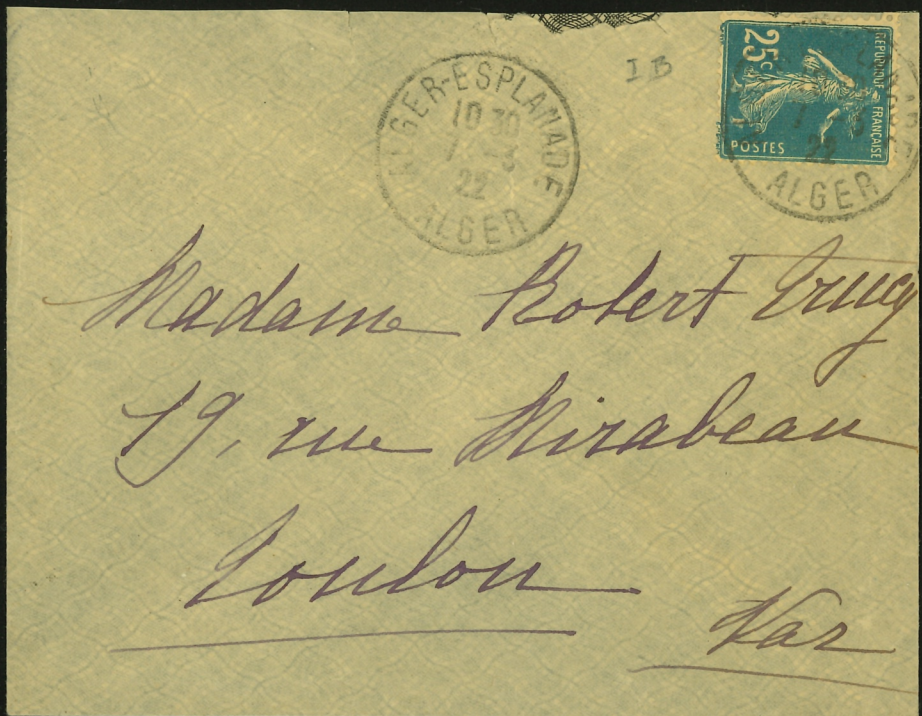 ALGER-ESPLANADE
10 30
1 - 3
22
ALGER
IB
25c
REPUBLIQUE FRANÇAISE
POSTES
1 3
22
ALGER
Madame Robert Trucy
19, rue Mirabeau
Toulon
Var